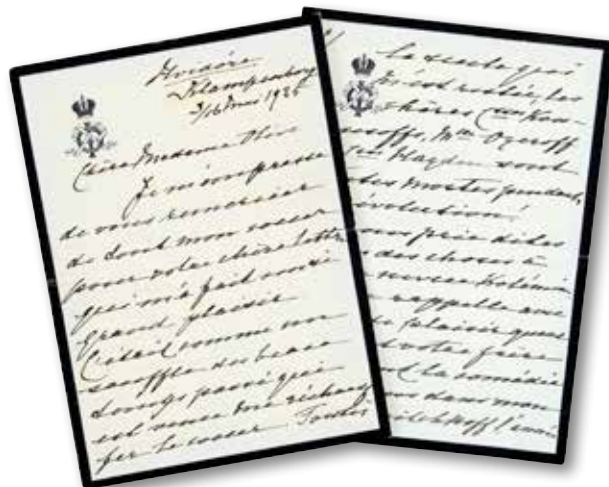 Hvidöre.
Klampenborg
Mai 1925
Chère Madame
Je m'empresse
de vous remercier
de tout mon coeur
pour votre chère lettre
qui m'a fait un si
grand plaisir
C'était comme un
souffle du beau
temps passé qui
est venu me réchauf
fer le coeur. Toutes
la seule qui
est restée, les
chères
Mlle Ozeroff
Hayden sont
mortes pendant
révolution!
prie dites
des choses à
neveu
rappelle avec
plaisir
votre frère
la comédie
dans mon